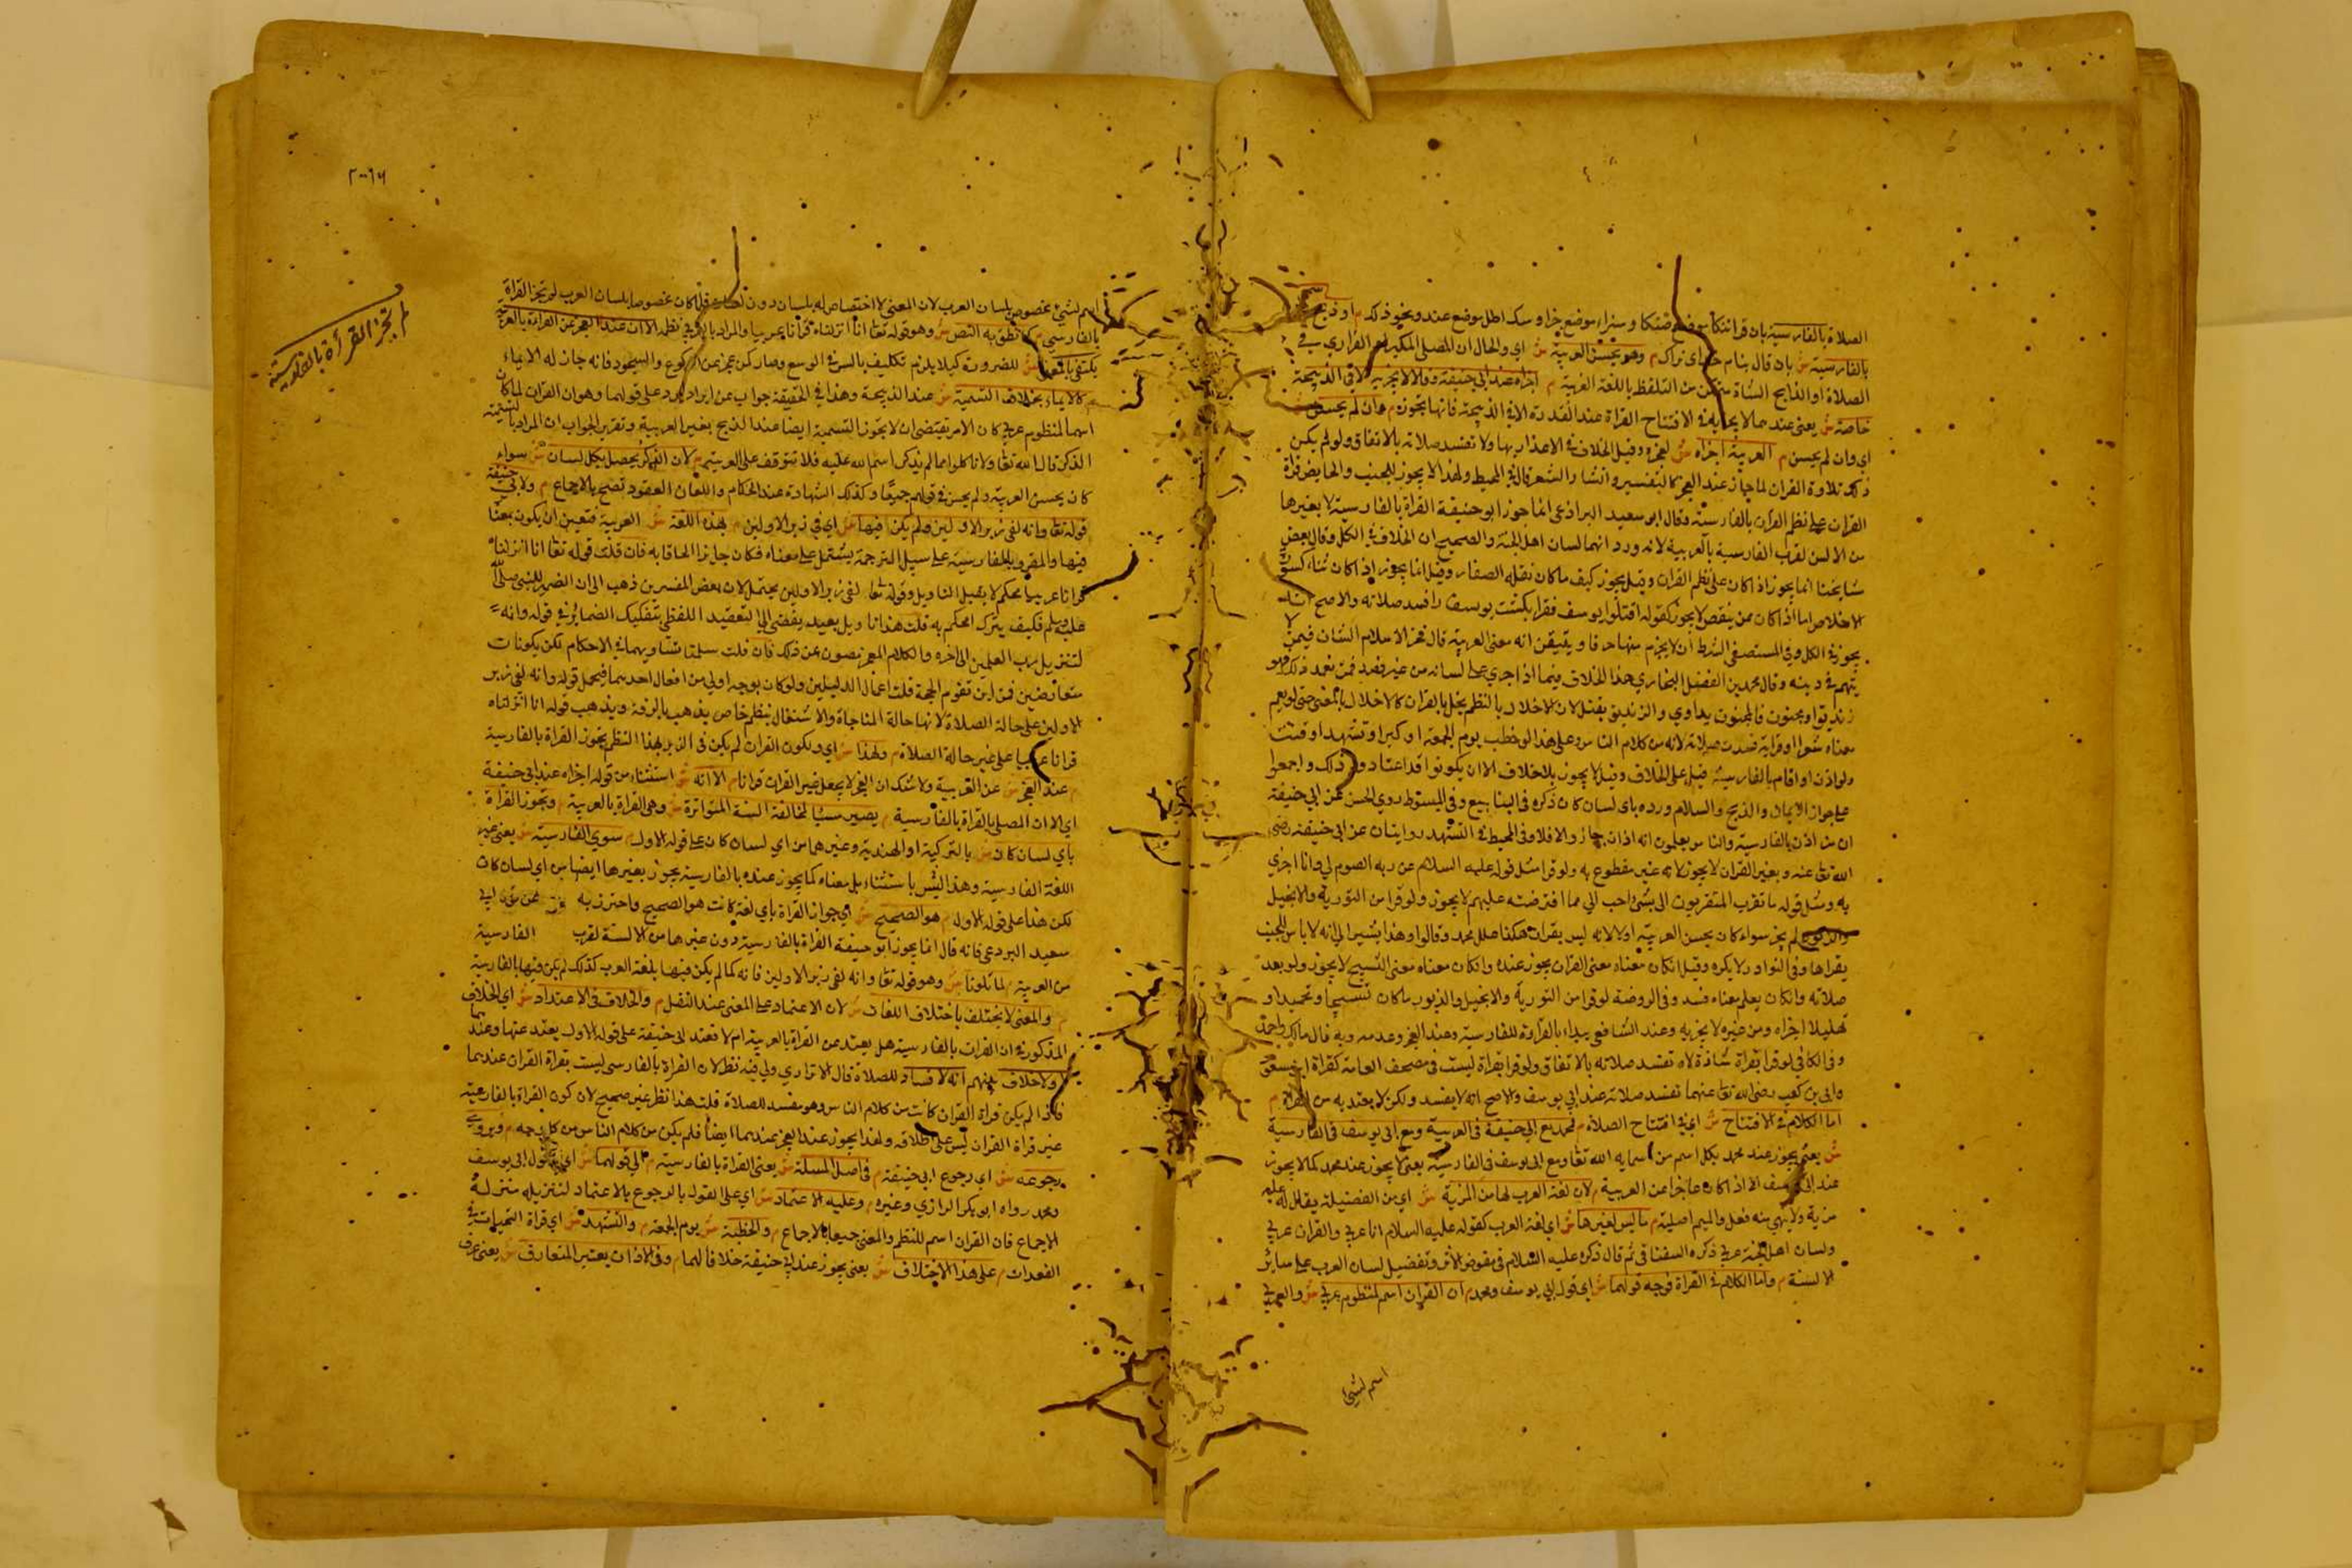 الصلاة بالفارسية بان قرا تنكا موضع ضنكا وسزاء موضع جزا وسك اطل موضع عندو ونحو ذلك م او ذبح
بالفارسية ش بان قال بنام خداى تراك م وهو يحسن العربية ش اي والحال ان المصلى المكبر او القاري في
الصلاة او الذابح الشاة متمكن من التلفظ باللغة العربية م اجزاه عند ابي حنيفة وقالا لا يجزيه الا في الذبيحة
خاصة ش يعني عندهما لا يجزيه في الافتتاح القراة عند القدرة الا في الذبيحة فانها تجوز م وان لم يحسن ش
اي وان لم يحسن م العربية اجزاه ش لعجزه وقيل الخلاف في الاعتداد بها ولا تفسد صلاته بالاتفاق ولو لم يكن
ذلك تلاوة القران لما جاز عند العجز كالتفسير وانشاد الشعر قال في المحيط ولهذا لا يجوز للجنب والحايض قراة
القران على نظم القران بالفارسية وقال ابو سعيد البراذعى انما جوز ابو حنيفة القراة بالفارسية لا بغيرها
من الالسن لقرب الفارسية بالعربية لانه ورد انهما لسان اهل الجنة والصحيح ان الخلاف في الكل وقال بعض
مشايخنا انما يجوز اذا كان على نظم القران وقيل يجوز كيف ما كان نقله الصفار وقيل انما يجوز اذا كان ثناء كسورة
الاخلاص اما اذا كان من القصص لا يجوز كقوله اقتلوا يوسف فقرا بكشت يوسف را فسد صلاته والاصح انه
يجوز في الكل وفي المستصفى الشرط ان لا يخرم منها حرفا ويتيقن انه معنى العربية قال فخر الاسلام الشان فيمن لا
يتهم في دينه وقال محمد بن الفضل البخاري هذا الخلاف فيما اذا جرى على لسانه من غير قصد فمن تعمد ذلك فهو
زنديق او مجنون فالمجنون يداوي والزنديق يقتل لان الاخلال بالنظم يخل بالقران كالاخلال بالمعنى حتى لو نعم
معناه شعرا او قراه فسدت صلاته لانه من كلام الناس وعلى هذا لو خطب يوم الجمعة او كبر او تشهد او قنت
ولو اذن او اقام بالفارسية قيل على الخلاف وقيل لا يجوز بلا خلاف الا ان يكونوا قد اعتادوا ذلك واجمعوا
على جواز الايمان والذبح والسلام ورده باى لسان كان ذكره في الينابيع وفي المبسوط روي الحسن عن ابي حنيفة
ان من اذن بالفارسية والناس يعلمون انه اذان جاز والا فلا وفي المحيط في التشهد روايتان عن ابي حنيفة رضي
الله تعا عنه وبغير القران لا يجوز لانه غير مقطوع به ولو قرا مثل قوله عليه السلام عن ربه الصوم لي وانا اجزي
به ومثل قوله ما تقرب المتقربون الى بشئ احب الي مما افترضته عليهم لا يجوز ولو قرا من التورية والانجيل
والزبور لم يجز سواء كان يحسن العربية او لا لانه ليس بقران هكذا علل محمد وقالوا وهذا يشير الى انه لا باس للجنب
يقراها وفي النوادر لا يكره وقيل ان كان معناه معنى القران يجوز عنده وان كان معناه معنى التسبيح لا يجوز ولو بعد
صلاته وان كان يعلم معناه فسد وفي الروضة لو قرا من التورية والانجيل والزبور ما كان تسبيحا وتحميدا و
تهليلا اجزاه ومن غيره لا يجزيه وعند الشافعى يبداء بالقراءة للفارسية وعند العجز وعدمه وبه قال مالك واحمد
وفي الكافي لو قرا بقراة شاذة لا تفسد صلاته بالاتفاق ولو قرا بقراة ليست في مصحف العامة كقراة ابن مسعود
وابى بن كعب رضى الله تعا عنهما تفسد صلاته عند ابي يوسف والاصح انه لا يفسد ولكن لا يعتد به من القراة م
اما الكلام في الافتتاح ش اي في افتتاح الصلاة م فمحمد مع ابي حنيفة في العربية ومع ابي يوسف في الفارسية
ش يعني يجوز عند محمد بكل اسم من اسمايه الله تعا ومع ابي يوسف في الفارسية يعني لا يجوز عند محمد كما لا يجوز
عند ابي يوسف الا اذا كان عاجزا عن العربية م لان لغة العرب لها من المزية ش اي من الفضيلة يقال له عليه
مزية ولا يبنى منه فعل والميم اصلية م ما ليس لغيرها ش اي لغة العرب كقوله عليه السلام انا عربي والقران عربي
ولسان اهل الجنة عربي ذكره السغناقي ثم قال ذكره عليه السلام في معرض الاثر وتفضيل لسان العرب على سائر
الالسنة م واما الكلام في القراة فوجه قولهما ش اي قول ابي يوسف ومحمد م ان القران اسم لمنظوم عربي ش والعربي
اسم لشئ
٢٠٠٦٦
لم تجز القرأة بالفارسية
اسم لشئ مخصوص بلسان العرب لان المعنى لا اختصاص له بلسان دون لسان فلما كان مخصوصا بلسان العرب لم تجز القراة
بالفارسي م كما نطق به النص ش وهو قوله تعا انا انزلناه قرانا عربيا والمراد بالعربي نظمه الا ان عند العجز عن القراءة بالعربية
يكتفي بالمعنى ش للضرورة كيلا يلزم تكليف ما ليس في الوسع وصار كمن عجز عن الركوع والسجود فانه جاز له الايماء
م كالايماء بخلاف التسمية ش عند الذبيحة وهذا في الحقيقة جواب عن ايراد يرد على قولهما وهو ان القران لما كان
اسما لمنظوم عربي كان الامر يقتضي ان لا تجوز التسمية ايضا عند الذبح بغير العربية وتقرير الجواب ان المراد بالتسمية
الذكر قال الله تعا ولا تاكلوا مما لم يذكر اسم الله عليه فلا تتوقف على العربية م لان الذكر يحصل بكل لسان ش سواء
كان يحسن العربية ولم يحسن في قولهم جميعا وكذلك الشهادة عند الحكام واللعان العقود تصح بالاجماع م ولابي حنيفة
قوله تعا وانه لفي زبر الاولين ولم يكن فيها ش اي في زبر الاولين م بهذه اللغة ش العربية فتعين ان يكون بمعنا
فيها والمقرو بالفارسية على سبيل الترجمة يشتمل على معناه فكان جايزا الحاقا به فان قلت قوله تعا انا انزلناه
قرانا عربيا محكم لا يقبل التاويل وقوله تعا لفي زبر الاولين يحتمل لان بعض المفسرين ذهب الى ان الضمير للنبي صلى الله
عليه وسلم فكيف يترك المحكم به قلت هذا تاويل بعيد يفضي الى التعقيد اللفظي بتفكيك الضمائر في قوله وانه
لتنزيل رب العلمين الى اخره والكلام المعجز مصون عن ذلك فان قلت سلمنا تساويهما في الاحكام لكن يكونان
متعارضين فمن اين تقوم الحجة قلت اعمال الدليلين ولو كان بوجه اولى من اهمال احدهما فيحمل قوله وانه لفي زبر
الاولين على حالة الصلاة لانها حالة المناجاة والاشتغال بنظم خاص يذهب بالرقة ويذهب قوله انا انزلناه
قرانا عربيا على غير حالة الصلاة م ولهذا ش اي ولكون القران لم يكن في الزبر بهذا النظم يجوز القراة بالفارسية
م عند العجز ش عن العربية ولا شك ان العجز لا يجعل غير القران قرانا م الا انه ش استثناء من قوله اجزاه عند ابي حنيفة
اي الا ان المصلى بالقراة بالفارسية م يصير مسيئا لمخالفة السنة المتواترة ش وهي القراة بالعربية م وتجوز القراة
باي لسان كان ش بالتركية او الهندية وغيرهما من اي لسان كان على قوله الاول م سوى الفارسية ش يعني غير
اللغة الفارسية وهذا ليس باستثناء بل معناه كما يجوز عنده بالفارسية يجوز بغيرها ايضا من اي لسان كان
لكن هذا على قوله الاول م هو الصحيح ش اي جواز القراة باي لغة كانت هو الصحيح واحترز به عن قول ابي
سعيد البردعى فانه قال انما يجوز ابو حنيفة القراة بالفارسية دون غيرها من الالسنة لقرب الفارسية
من العربية م لما تلونا ش وهو قوله تعا وانه لفي زبر الاولين فانه كما لم يكن فيها بلغة العرب كذلك لم يكن فيها بالفارسية
م والمعنى لا يختلف باختلاف اللغات ش لان الاعتماد على المعنى عند النقل م والخلاف في الاعتداد ش اي الخلاف
المذكور في ان القران بالفارسية هل يعتد عن القراة بالعربية ام لا فعند ابي حنيفة على قوله الاول يعتد عنها وعندهما
لا ولا خلاف بينهم انه لا فساد للصلاة قال الاتراري ولي فيه نظر لان القراة بالفارسي ليست بقراة القران عندهما
فاذا لم يكن قراة القران كانت من كلام الناس وهو مفسد للصلاة قلت هذا نظر غير صحيح لان كون القراة بالفارسية
غير قراة القران ليس على اطلاقه ولهذا يجوز عند العجز عندهما ايضا فلم يكن من كلام الناس من كل وجه م ويروى
رجوعه ش اي رجوع ابي حنيفة م في اصل المسئلة ش يعني القراة بالفارسية م الى قولهما ش اي قول ابي يوسف
ومحمد رواه ابو بكر الرازي وغيره م وعليه الاعتماد ش اي على القول بالرجوع الاعتماد لتنزيله منزلة
الاجماع فان القران اسم للنظم والمعنى جميعا بالاجماع م والخطبة ش يوم الجمعة م والتشهد ش اي قراة التحيات في
القعدات م على هذا الاختلاف ش يعني يجوز عند ابي حنيفة خلافا لهما م وفي الاذان يعتبر المتعارف ش يعني عرف